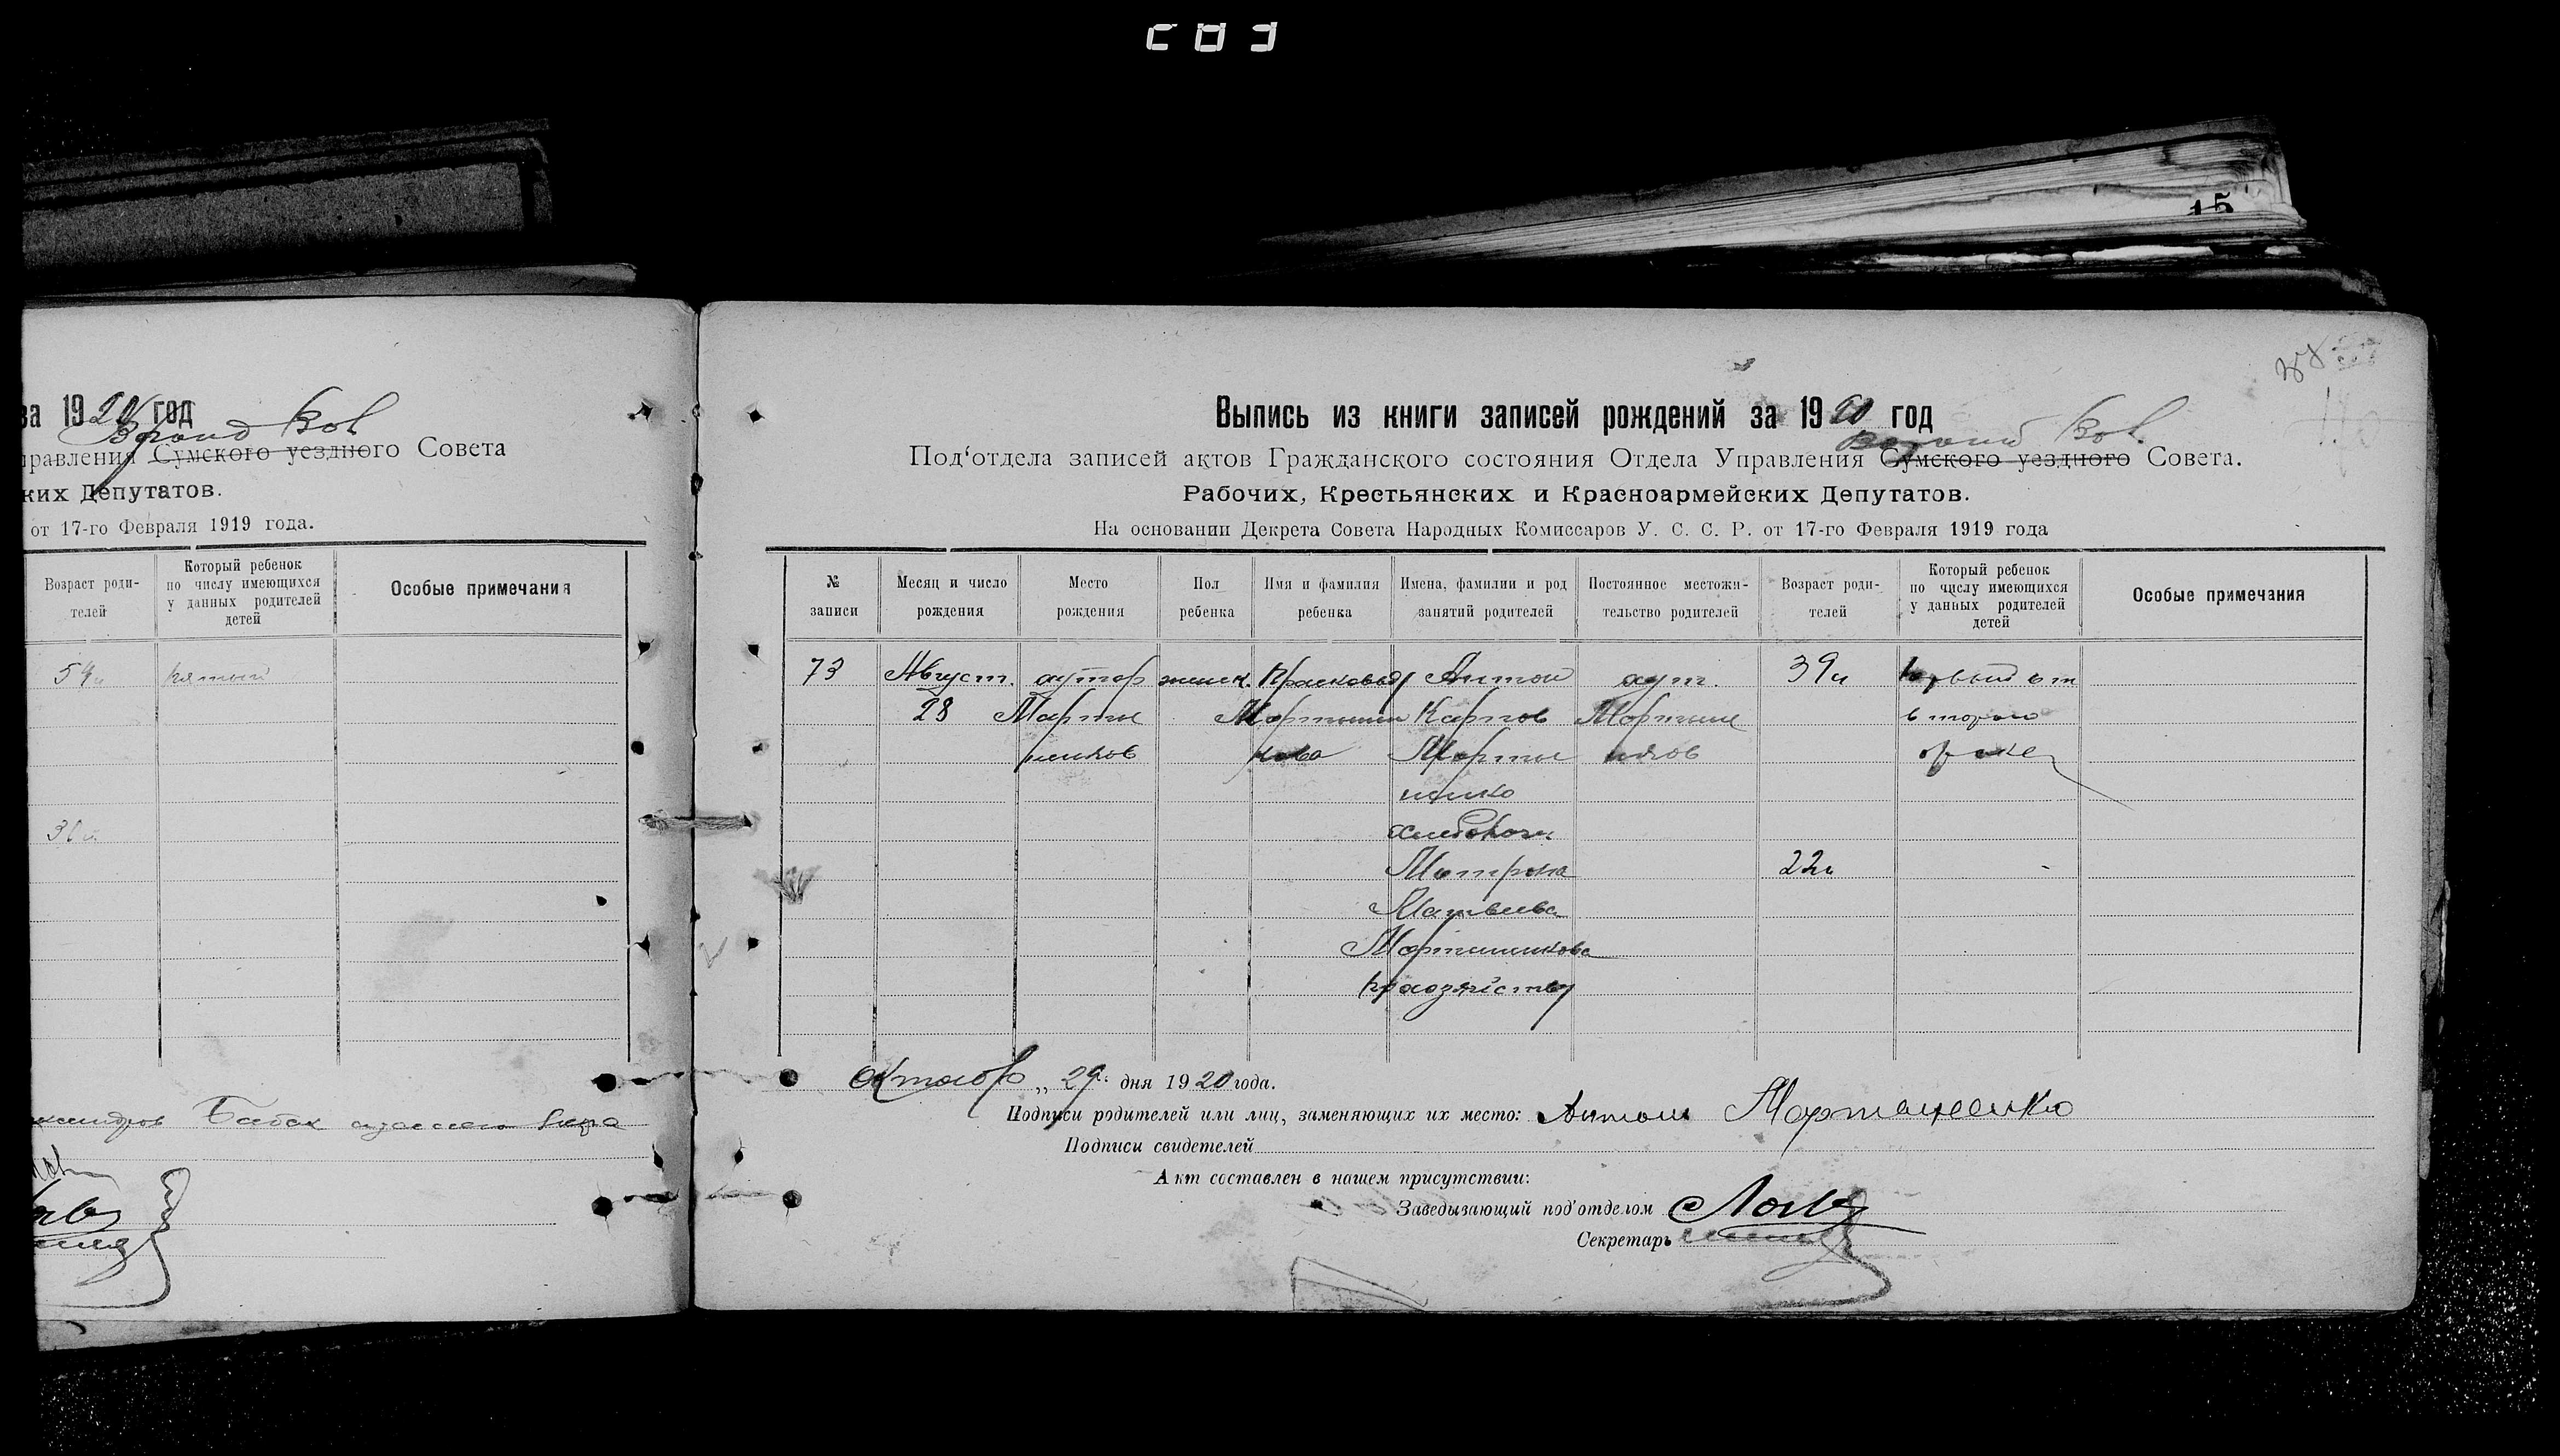 за 1920 год
Совета
Сумского уездного
ких Депутатов.
от 17-го Февраля 1919 года.
Возраст роди-
телей
Который ребенок
по числу имеющихся
у данных родителей
детей
Особые примечания
пятый
Бабак
15
Выпись из книги записей рождений за 1920 год
Под'отдела записей актов Гражданского состояния Отдела Управления Сумского уездного Совета.
Рабочих, Крестьянских и Красноармейских Депутатов.
На основании Декрета Совета Народных Комиссаров У. С. С. Р. от 17-го Февраля 1919 года
№
записи
Месяц и число
рождения
Место
рождения
Пол
ребенка
Имя и фамилия
ребенка
Имена, фамилии и род
занятий родителей
Постоянное местожи-
тельство родителей
Возраст роди-
телей
Который ребенок
по числу имеющихся
у данных родителей
детей
Особые примечания
73
Август.
28
хутор
Марты
ненков
женск.
Антон
Карпов
Марты
ненко
хлебороб
Матрона
Матвеева
Мартыненкова
хозяйство
хут.
Мартыне
нков
39
22
первый от
второго
брака
Октябр „ 29 " дня 1920 года.
Подписи родителей или лиц, заменяющих их место: Антон Мартыненко
Подписи свидетелей
Акт составлен в нашем присутствии:
Заведывающий под'отделом
Секретарь